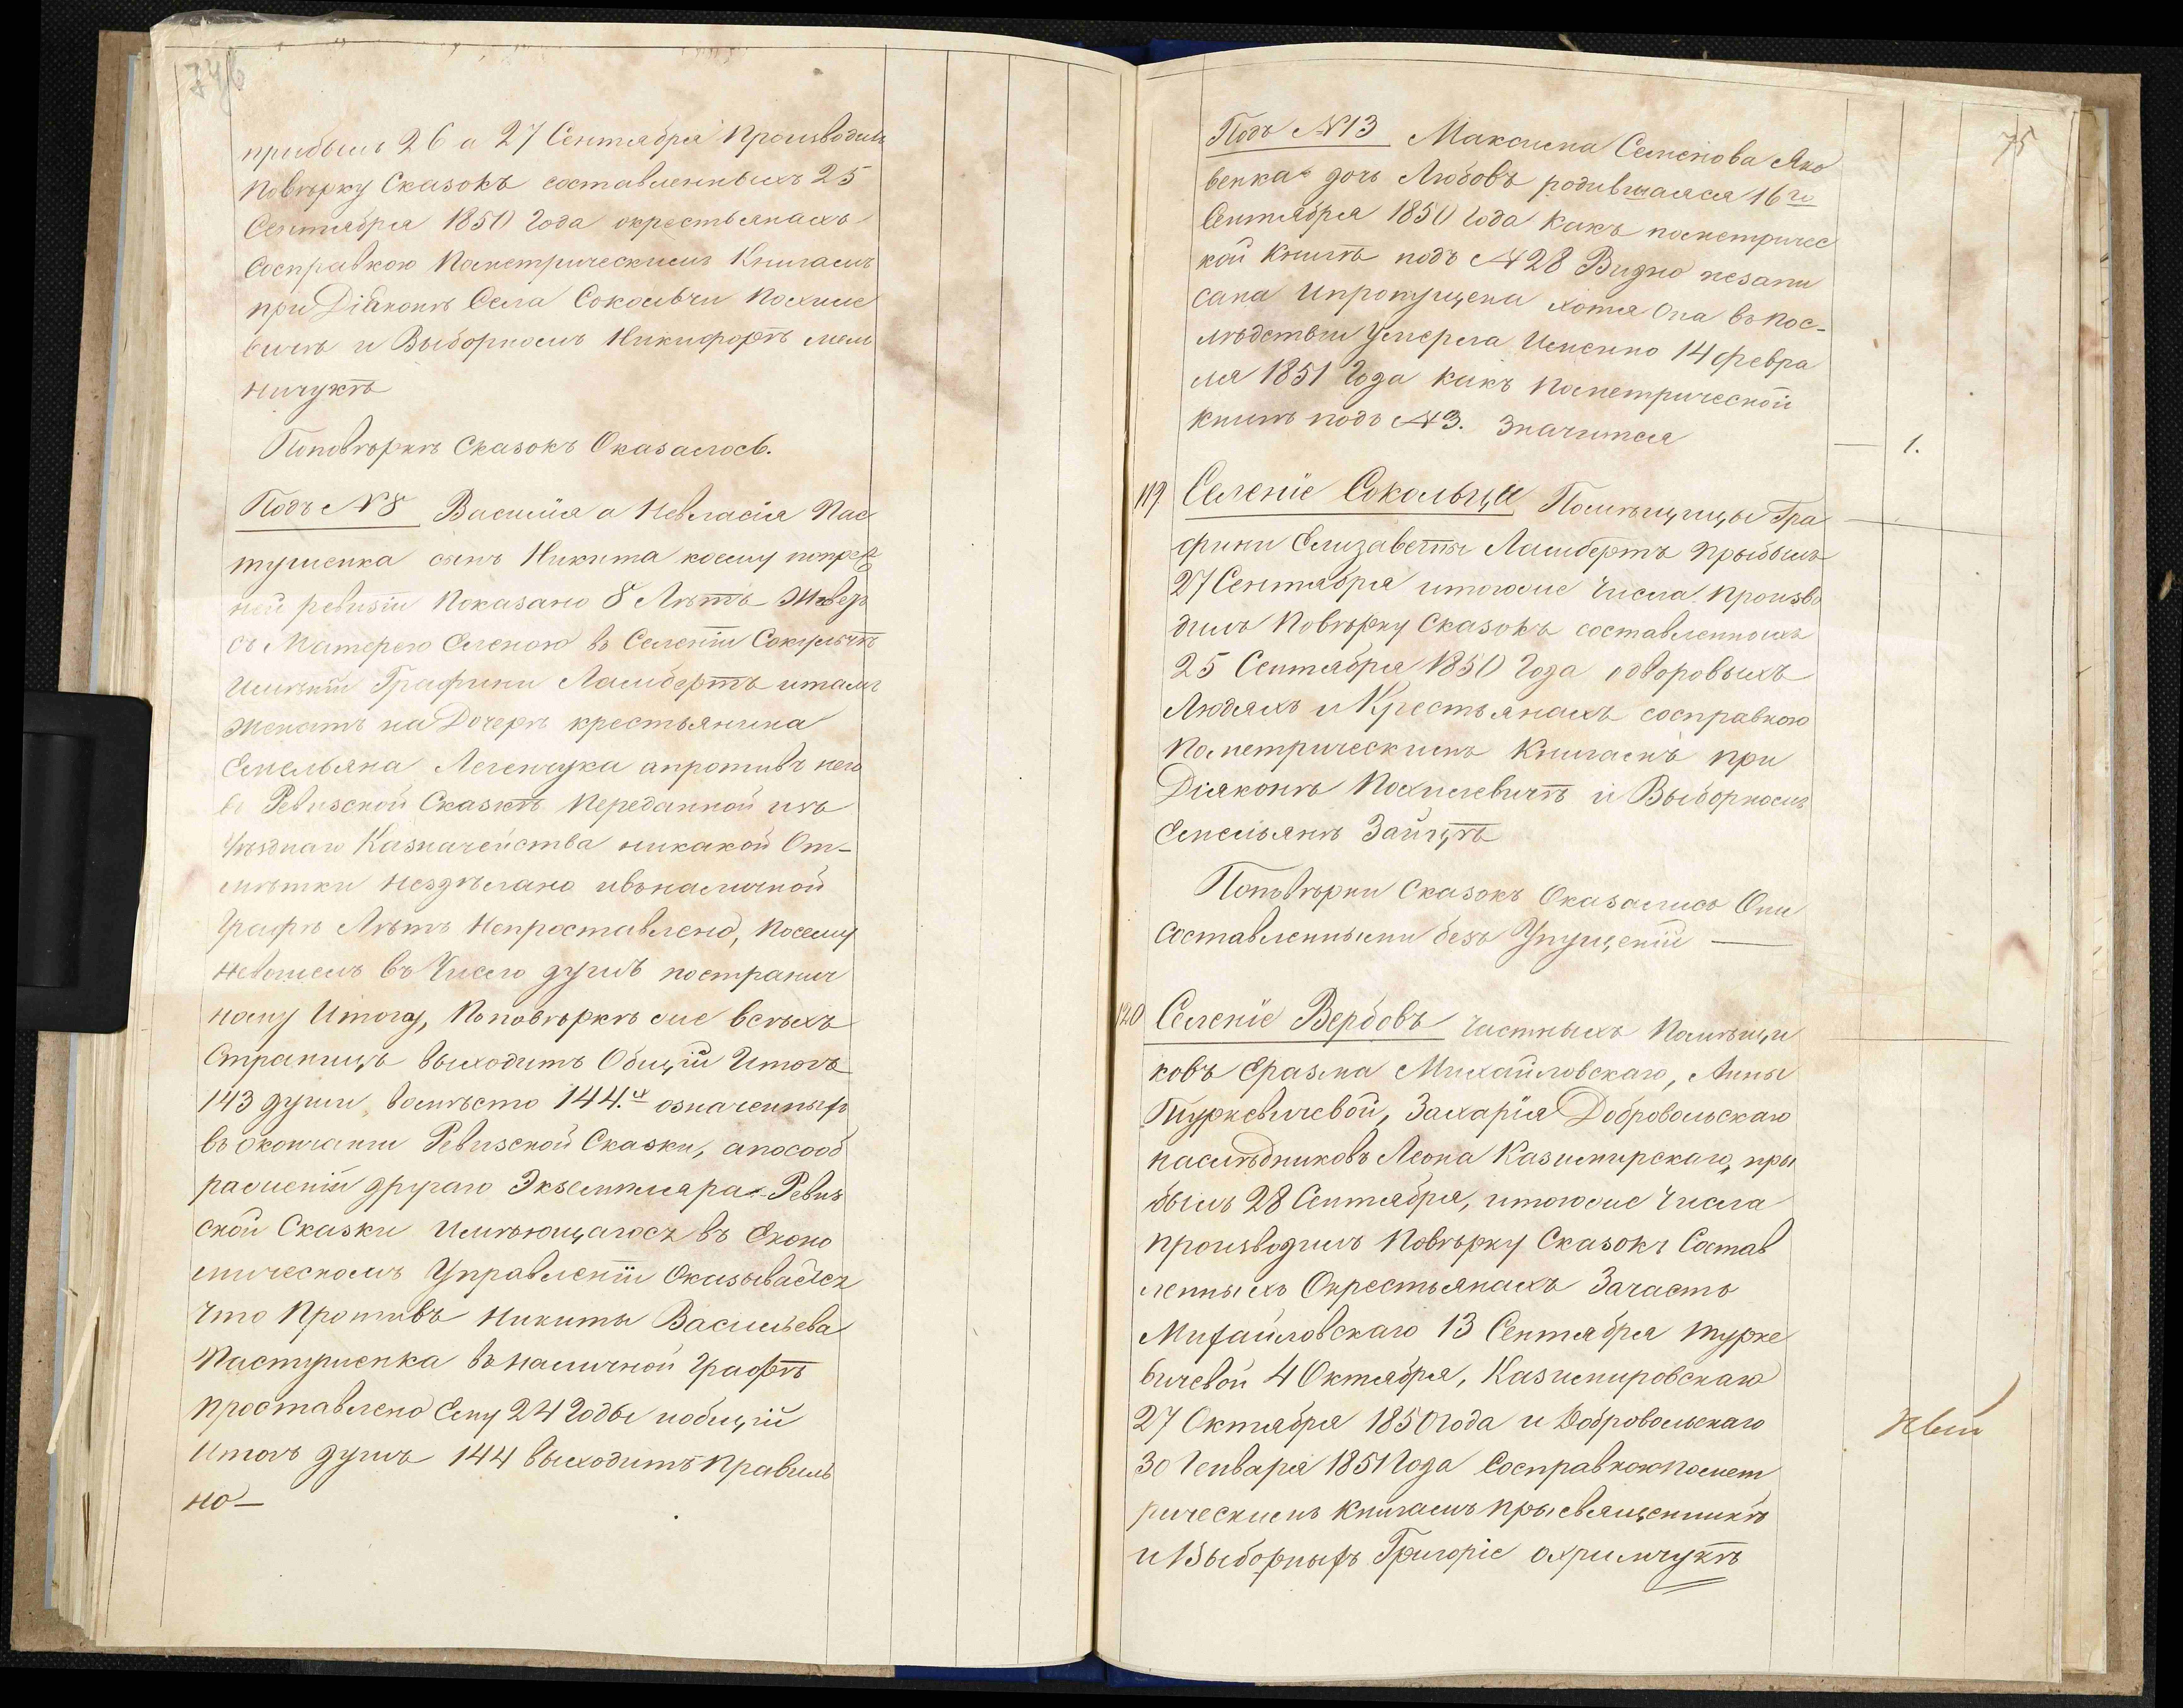 74б
прибылъ 26 а 27 Сентября Производилъ
Повѣрку Сказокъ составленныхъ 25
Сентября 1850 Года окрестьянахъ
Cосправкою Пометрическимъ Книгамъ
при Діяконѣ Села Сокольчи Похиле
вичѣ и Выборномъ Никифорѣ мель
ничукѣ
Поповѣркѣ Сказокъ Оказалось.
Подъ №8 Василія а Невласія Пас
тушенка сынъ Никита коему попреж
ней ревизіи Показано 8 Лѣтъ Живетъ
съ Матерею Еленою въ Селеніи Сокульчѣ
Имѣніи Графини Ламбертъ итамъ
Женатъ на Дочерѣ крестьянина
Емельяна Легенчука апротивъ него
въ Ревизской Сказкѣ Переданной изъ
Уѣзднаго Казначейства никакой От-
мѣтки нездѣлано ивъналичной
Графѣ Лѣтъ Непроставлено, Посему
невошелъ въ Число душъ постранич
ному Итогу, Поповѣркѣ же всѣхъ
Страницъ выходитъ Общій Итогъ
143 души, вомѣсто 144.х означенныхъ
въ окончаніи Ревизской Сказки, апосооб
раженіи другаго Экземпляра Ревиз
ской Сказки Имѣющагось въ Еконо
мическомъ Управленіи Оказывается
Что Противъ Никиты Васильева
Пастушенка въ наличной Графѣ
проставлено Ему 24 Годы иобщій
Итогъ душъ 144 выходитъ Правиль
но —
75
Подъ №13 Максима Семенова Яко
венка дочь Любовъ родившаяся 16го
Сентября 1850 Года Какъ пометричес
кой Книгѣ подъ №28 Видно незапи
сана Ипропущена хотя Она въ пос-
лѣдствіи Умерла Именно 14 февра
ля 1851 Года какъ Пометрической
Книгѣ подъ №3. Значится — 1.
119 Селеніе Сокольча Помѣщицы Гра
фини Елизаветы Ламбертъ Прыбылъ
27 Сентября итогоже Числа Произво
дилъ Повѣрку Сказокъ составленныхъ
25 Сентября 1850 Года одворовыхъ
Людяхъ и Крестьянахъ сосправкою
Пометрическимъ Книгамъ при
Діяконѣ Похилевичѣ и Выборномъ
Емеліянѣ Зайцѣ
Поповѣрки Сказокъ Оказались Они
Составленными безъ Упущеній —
120 Селеніе Вербовъ частныхъ Помѣщи
ковъ Еразма Михайловскаго, Анны
Туркевичевой, Захарія Добровольскаго
наслѣдниковъ Леона Казимирскаго, пры
былъ 28 Сентября, итогоже Числа
производилъ Повѣрку Сказокъ Состав
ленныхъ Окрестьянахъ Зачасть
Михайловскаго 13 Сентября Турке
вичевой 4 Октября, Казимировскаго
27 Октября 1850 года и Добровольскаго
30 Генваря 1851 Года Сосправкою помет
рическимъ Книгамъ прысвященникѣ
и Выборныхъ Григоріе охримчукѣ